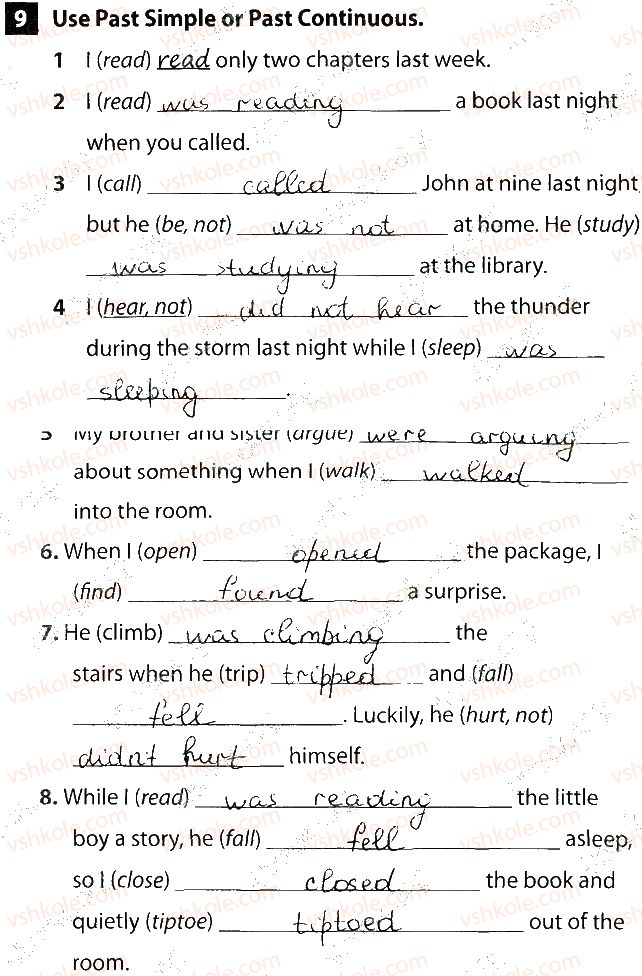 9 Use Past Simple or Past Continuous.
1 I (read) read only two chapters last week.
2 I (read) was reading a book last night
when you called.
3 I (call) called John at nine last night
but he (be, not) was not at home. He (study)
was studying at the library.
4 I (hear, not) did not hear the thunder
during the storm last night while I (sleep) was
sleeping.
5 My brother and sister (argue) were arguing
about something when I (walk) walked
into the room.
6. When I (open) opened the package, I
(find) found a surprise.
7. He (climb) was climbing the
stairs when he (trip) tripped and (fall)
fell. Luckily, he (hurt, not)
didn't hurt himself.
8. While I (read) was reading the little
boy a story, he (fall) fell asleep,
so I (close) closed the book and
quietly (tiptoe) tiptoed out of the
room.